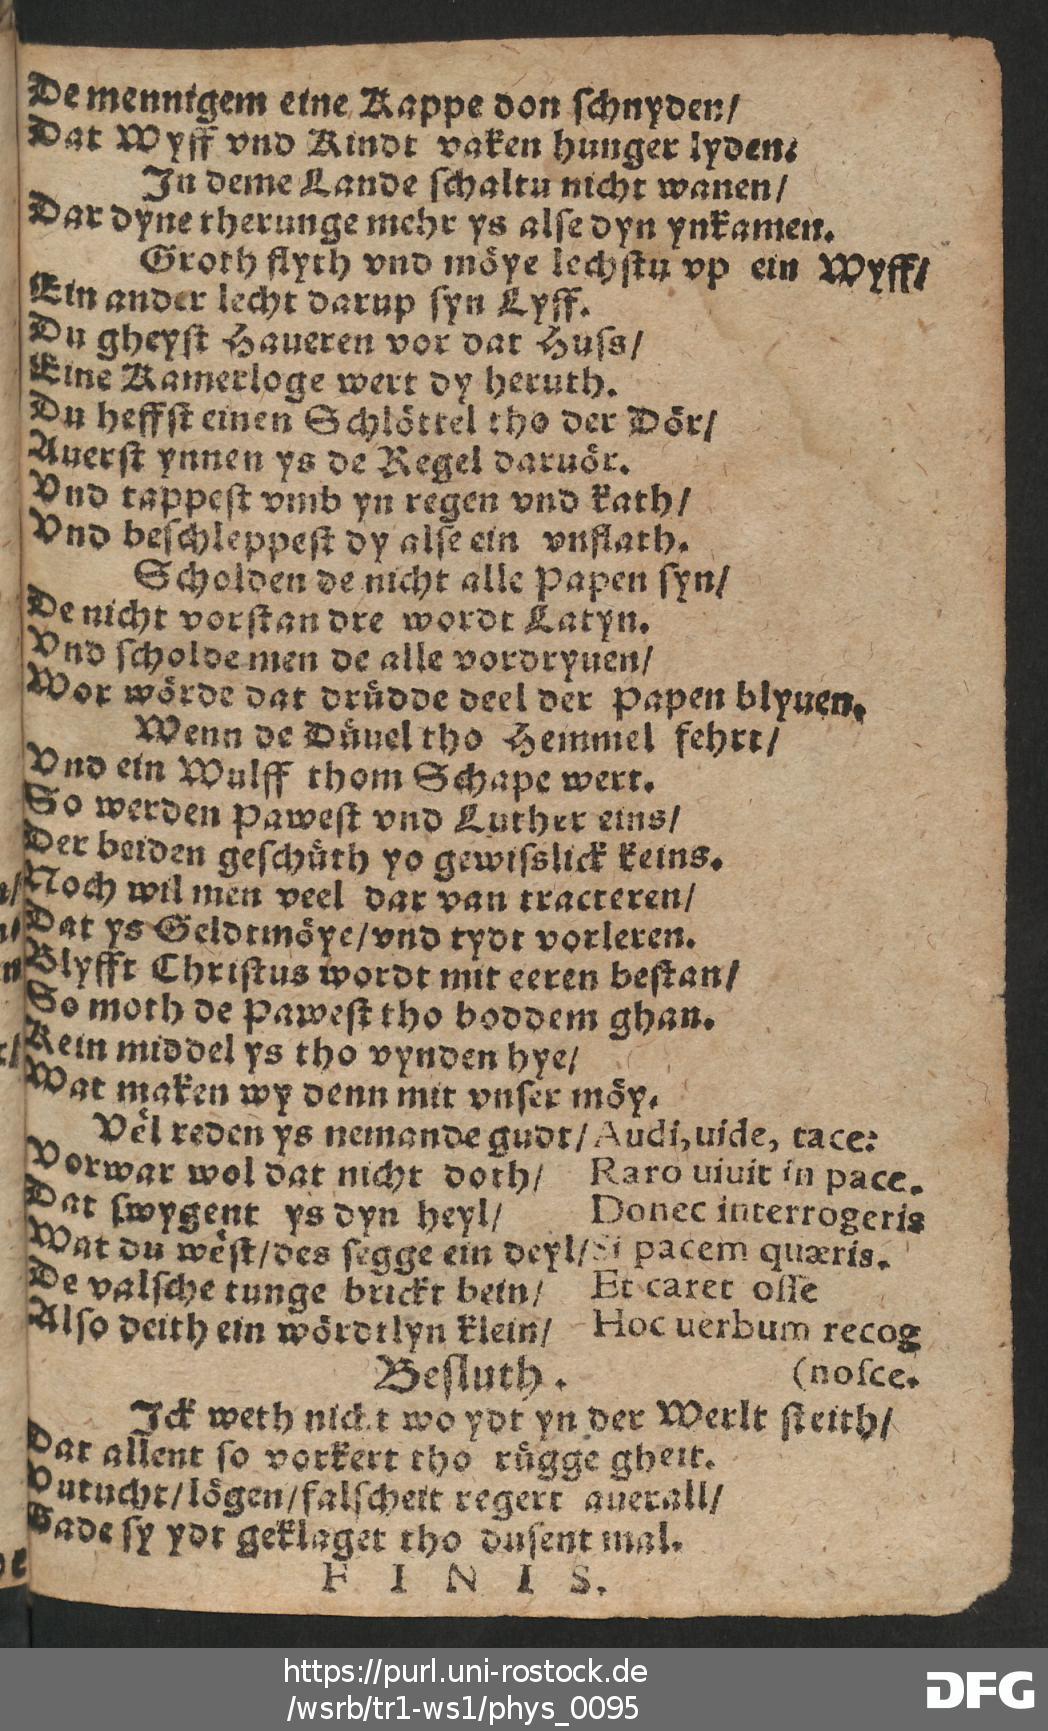 De mennigem eine Kappe don schnyden/
Dat Wyff vnd Kindt vaken hunger lyden.
In deme Lande schaltu nicht wanen/
Dar dyne therunge mehr ys alse dyn ynkamen.
Groth flyth vnd möye lechstu vp ein Wyff/
Ein ander lecht darup syn Lyff.
Du gheyst Haueren vor dat Huss/
Eine Kamerloge wert dy heruth.
Du heffst einen Schlöttel tho der Dör/
Auerst ynnen ys de Regel daruör.
Vnd tappest vmb yn regen vnd kath/
Vnd beschleppest dy alse ein vnflath.
Scholden de nicht alle Papen syn/
De nicht vorstan dre wordt Latyn.
Vnd scholde men de alle vordryuen/
Wor wörde dat drüdde deel der Papen blyuen.
Wenn de Düuel tho Hemmel fehrt/
Vnd ein Wulff thom Schape wert.
So werden Pawest vnd Luther eins/
Der beiden geschüth yo gewisslick keins.
Noch wil men veel dar van tracteren/
Dat ys Geldtmöye/vnd tydt vorleren.
Blyfft Christus wordt mit eeren bestan/
So moth de Pawest tho boddem ghan.
Kein middel ys tho vynden hye/
Wat maken wy denn mit vnser möy.
Vël reden ys nemande gudt/ Audi, uide, tace:
Vorwar wol dat nicht doth/ Raro uiuit in pace.
Dat swygent ys dyn heyl/ Donec interrogeris
Wat du wëst/des segge ein deyl/ Si pacem quæris.
De valsche tunge brickt bein/ Et caret osse
Also deith ein wördtlyn klein/ Hoc uerbum recog
Besluth. (nosce.
Ick weth nicht wo ydt yn der Werlt steith/
Dat allent so vorkert tho rügge gheit.
Vntucht/lögen/falscheit regert auerall/
Gade sy ydt geklaget tho dusent mal.
F I N I S.
https://purl.uni-rostock.de
/wsrb/tr1-ws1/phys_0095
DFG